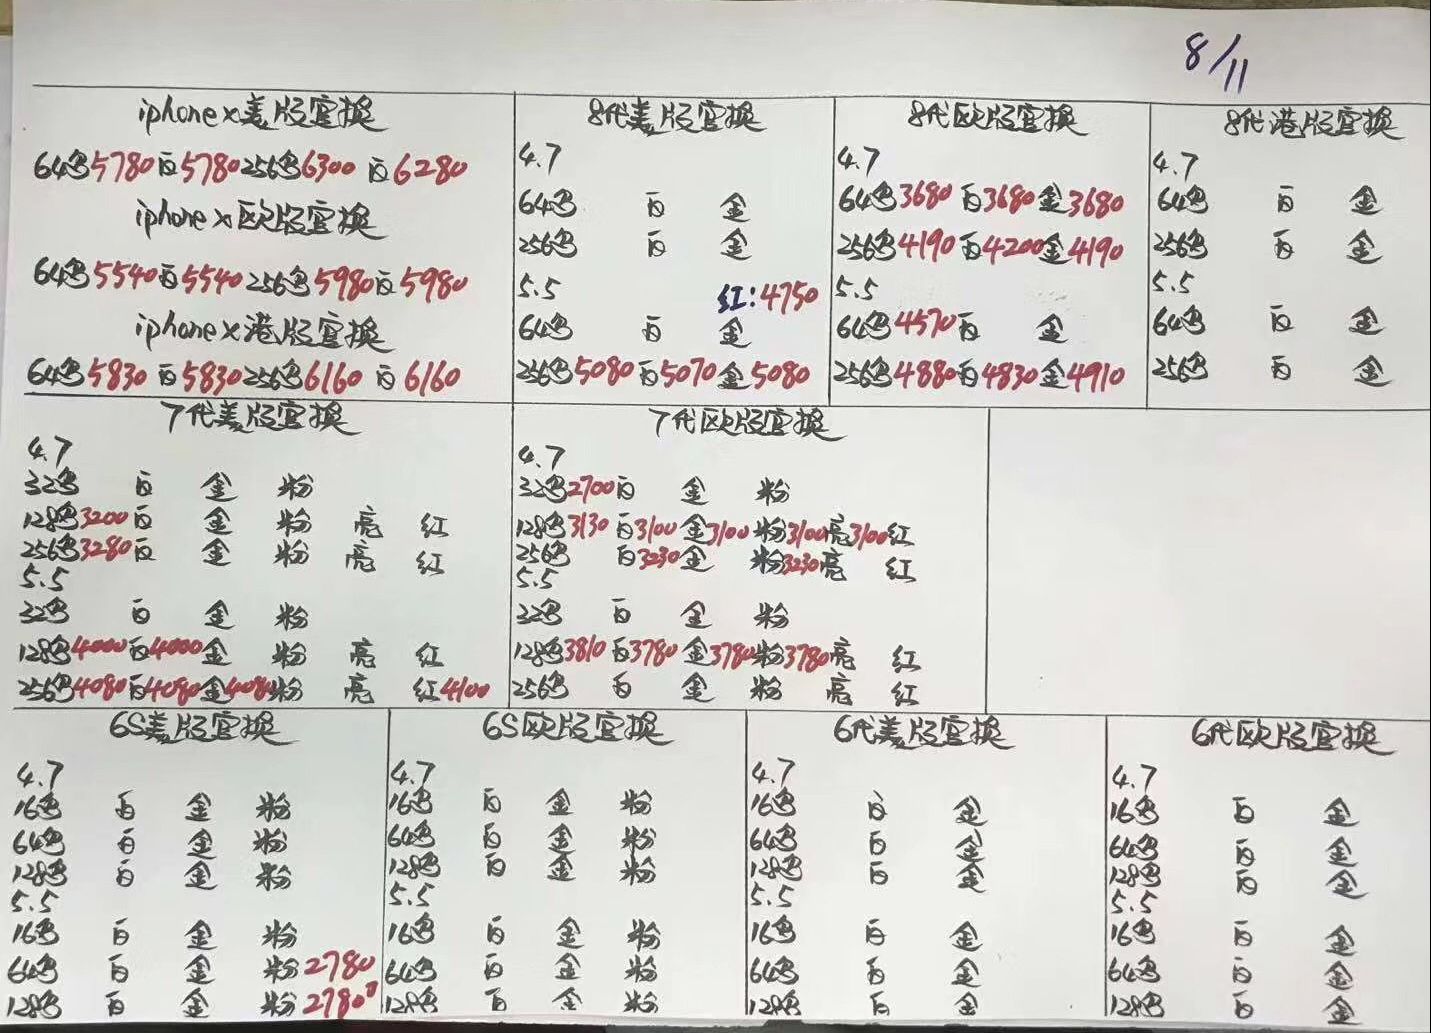 8/11
iphone x美版官换
64黑5780白5780 256黑6300 白6280
iphone x欧版官换
64黑5540白5540 256黑5980白5980
iphone x港版官换
64黑5830白5830 256黑6160 白6160
8代美版官换
4.7
64黑 白 金
256黑 白 金
5.5 红:4750
64黑 白 金
256黑5080白5070金5080
8代欧版官换
4.7
64黑3680白3680金3680
256黑4190白4200金4190
5.5
64黑4570白 金
256黑4880白4830金4910
8代港版官换
4.7
64黑 白 金
256黑 白 金
5.5
64黑 白 金
256黑 白 金
7代美版官换
4.7
32黑 白 金 粉
128黑3200白 金 粉 亮 红
256黑3280白 金 粉 亮 红
5.5
32黑 白 金 粉
128黑4000白4000金 粉 亮 红
256黑4080白4080金4080粉 亮 红4100
7代欧版官换
4.7
32黑2700白 金 粉
128黑3130白3100金3100粉3100亮3100红
256黑 白3230金 粉3230亮 红
5.5
32黑 白 金 粉
128黑3810白3780金3780粉3780亮 红
256黑 白 金 粉 亮 红
6S美版官换
4.7
16黑 白 金 粉
64黑 白 金 粉
128黑 白 金 粉
5.5
16黑 白 金 粉
64黑 白 金 粉2780
128黑 白 金 粉2780
6S欧版官换
4.7
16黑 白 金 粉
64黑 白 金 粉
128黑 白 金 粉
5.5
16黑 白 金 粉
64黑 白 金 粉
128黑 白 金 粉
6代美版官换
4.7
16黑 白 金
64黑 白 金
128黑 白 金
5.5
16黑 白 金
64黑 白 金
128黑 白 金
6代欧版官换
4.7
16黑 白 金
64黑 白 金
128黑 白 金
5.5
16黑 白 金
64黑 白 金
128黑 白 金